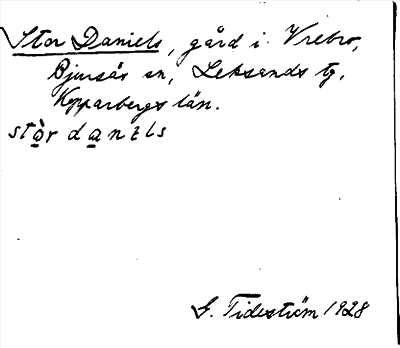 Stor Daniels, gård i Vrebro,
Bjursås sn, Leksands tg,
Kopparbergs län.
stò̲r da̲nɩls
G. Tideström 1928